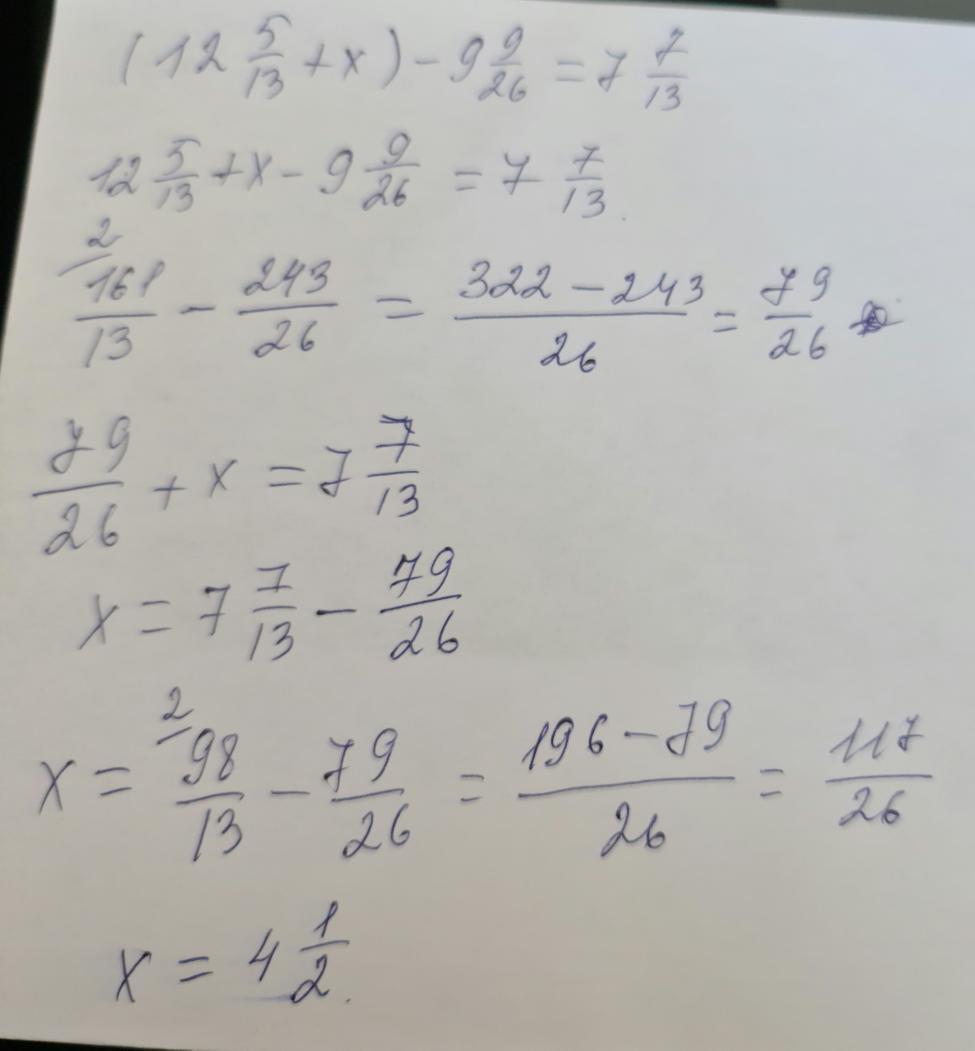 (12 5/13 + x) - 9 9/26 = 7 7/13
12 5/13 + x - 9 9/26 = 7 7/13.
2/ 161/13 - 243/26 = (322 - 243)/26 = 79/26
79/26 + x = 7 7/13
x = 7 7/13 - 79/26
x = 2/ 98/13 - 79/26 = (196 - 79)/26 = 117/26
x = 4 1/2.